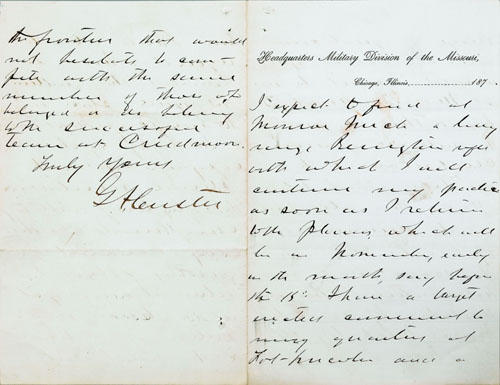 the frontier that would
not hesitate to com-
pete with the same
number of those who
belonged as being
to the successful
team at Creedmoor.
Truly Yours
G A Custer
Headquarters Military Division of the Missouri,
Chicago, Illinois, 187
I expect to find at
Monroe Mich a long
range Remington rifle
with which I will
continue my practice
as soon as I return
to the plains, which will
be in November, early
in the month, say before
the 15th. I have a target
erected convenient to
my quarters at
and a